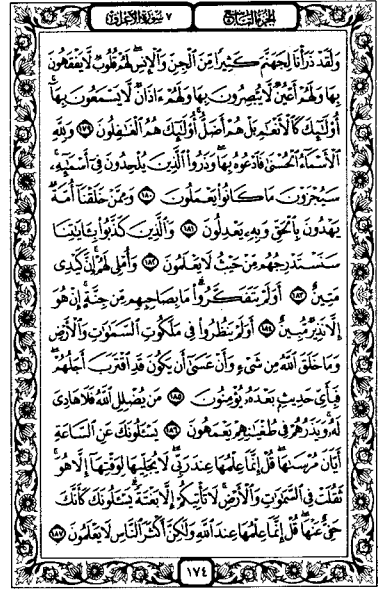 الجزء التاسع ٧ سورة الأعراف
وَلَقَدْ ذَرَأْنَا لِجَهَنَّمَ كَثِيرًا مِّنَ الْجِنِّ وَالْإِنسِ لَهُمْ قُلُوبٌ لَّا يَفْقَهُونَ
بِهَا وَلَهُمْ أَعْيُنٌ لَّا يُبْصِرُونَ بِهَا وَلَهُمْ ءَاذَانٌ لَّا يَسْمَعُونَ بِهَا
أُوْلَٰئِكَ كَالْأَنْعَامِ بَلْ هُمْ أَضَلُّ أُوْلَٰئِكَ هُمُ الْغَافِلُونَ ١٧٩ وَلِلَّهِ
الْأَسْمَاءُ الْحُسْنَىٰ فَادْعُوهُ بِهَا وَذَرُوا الَّذِينَ يُلْحِدُونَ فِي أَسْمَائِهِ
سَيُجْزَوْنَ مَا كَانُوا يَعْمَلُونَ ١٨٠ وَمِمَّنْ خَلَقْنَا أُمَّةٌ
يَهْدُونَ بِالْحَقِّ وَبِهِ يَعْدِلُونَ ١٨١ وَالَّذِينَ كَذَّبُوا بِآيَاتِنَا
سَنَسْتَدْرِجُهُم مِّنْ حَيْثُ لَا يَعْلَمُونَ ١٨٢ وَأُمْلِي لَهُمْ إِنَّ كَيْدِي
مَتِينٌ ١٨٣ أَوَلَمْ يَتَفَكَّرُوا مَا بِصَاحِبِهِم مِّن جِنَّةٍ إِنْ هُوَ
إِلَّا نَذِيرٌ مُّبِينٌ ١٨٤ أَوَلَمْ يَنظُرُوا فِي مَلَكُوتِ السَّمَاوَاتِ وَالْأَرْضِ
وَمَا خَلَقَ اللَّهُ مِن شَيْءٍ وَأَنْ عَسَىٰ أَن يَكُونَ قَدِ اقْتَرَبَ أَجَلُهُمْ
فَبِأَيِّ حَدِيثٍ بَعْدَهُ يُؤْمِنُونَ ١٨٥ مَن يُضْلِلِ اللَّهُ فَلَا هَادِيَ
لَهُ وَيَذَرُهُمْ فِي طُغْيَانِهِمْ يَعْمَهُونَ ١٨٦ يَسْأَلُونَكَ عَنِ السَّاعَةِ
أَيَّانَ مُرْسَاهَا قُلْ إِنَّمَا عِلْمُهَا عِندَ رَبِّي لَا يُجَلِّيهَا لِوَقْتِهَا إِلَّا هُوَ
ثَقُلَتْ فِي السَّمَاوَاتِ وَالْأَرْضِ لَا تَأْتِيكُمْ إِلَّا بَغْتَةً يَسْأَلُونَكَ كَأَنَّكَ
حَفِيٌّ عَنْهَا قُلْ إِنَّمَا عِلْمُهَا عِندَ اللَّهِ وَلَٰكِنَّ أَكْثَرَ النَّاسِ لَا يَعْلَمُونَ ١٨٧
١٧٤